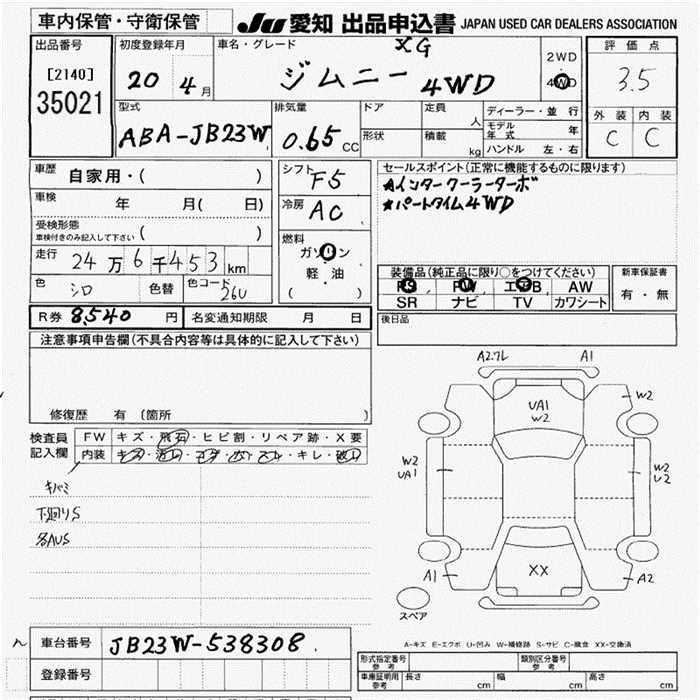 車内保管・守衛保管
JU 愛知 出品申込書 JAPAN USED CAR DEALERS ASSOCIATION
出品番号 初度登録年月 車名・グレード XG 評価点
[2140] 20 4月 ジムニー 4WD 2WD 4WD 3.5
35021
外装 内装
C C
型式 排気量 ドア 定員 人 ディーラー・並行
ABA-JB23W 0.65CC 形状 積載 kg モデル年式 年
ハンドル 左・右
車歴 自家用・( ) シフト F5 セールスポイント(正常に機能するものに限ります)
車検 年 月( 日) 冷房 AC ★インタークーラーターボ
★パートタイム4WD
受検形態
車検付きのみ記入して下さい ( ) 燃料
走行 24万6千453km ガソリン
軽・油
( )
色 シロ 色替 色コード 26U
装備品(純正品に限り○をつけてください) 新車保証書
PS PW エアB AW 有・無
SR ナビ TV カワシート
R券 8,540円 名変通知期限 月 日 後日品
注意事項申告欄(不具合内容等は具体的に記入して下さい)
修復歴 有 (箇所 )
検査員 FW キズ・飛石・ヒビ割・リペア跡・X要
記入欄 内装 キズ・汚れ・コゲ・穴・スレ・キレ・破れ
キバミ
下回りS
各AUS
A2.7L A1
W2
UA1
W2
W2
UA1
W2
U2
XX
A1 A2
スペア
A-キズ E-エクボ U-凹み W-補修跡 S-サビ C-腐食 XX-交換済
車台番号 JB23W-538308
登録番号
形式指定番号 参考 類別区分番号 参考
車庫証明用 参考 長さ cm 幅 cm 高さ cm